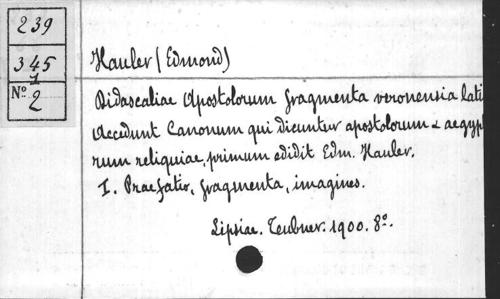 239
345
1
No 2
Hauler (Edmond)
Didascaliae Apostolorum fragmenta veronensia lati
Accedunt Canonum qui dicuntur apostolorum & aegyp
rum reliquiae, primum edidit Edm. Hauler.
I. Praefatio, fragmenta, imagines.
Lipsiae. Teubner. 1900. 8o.